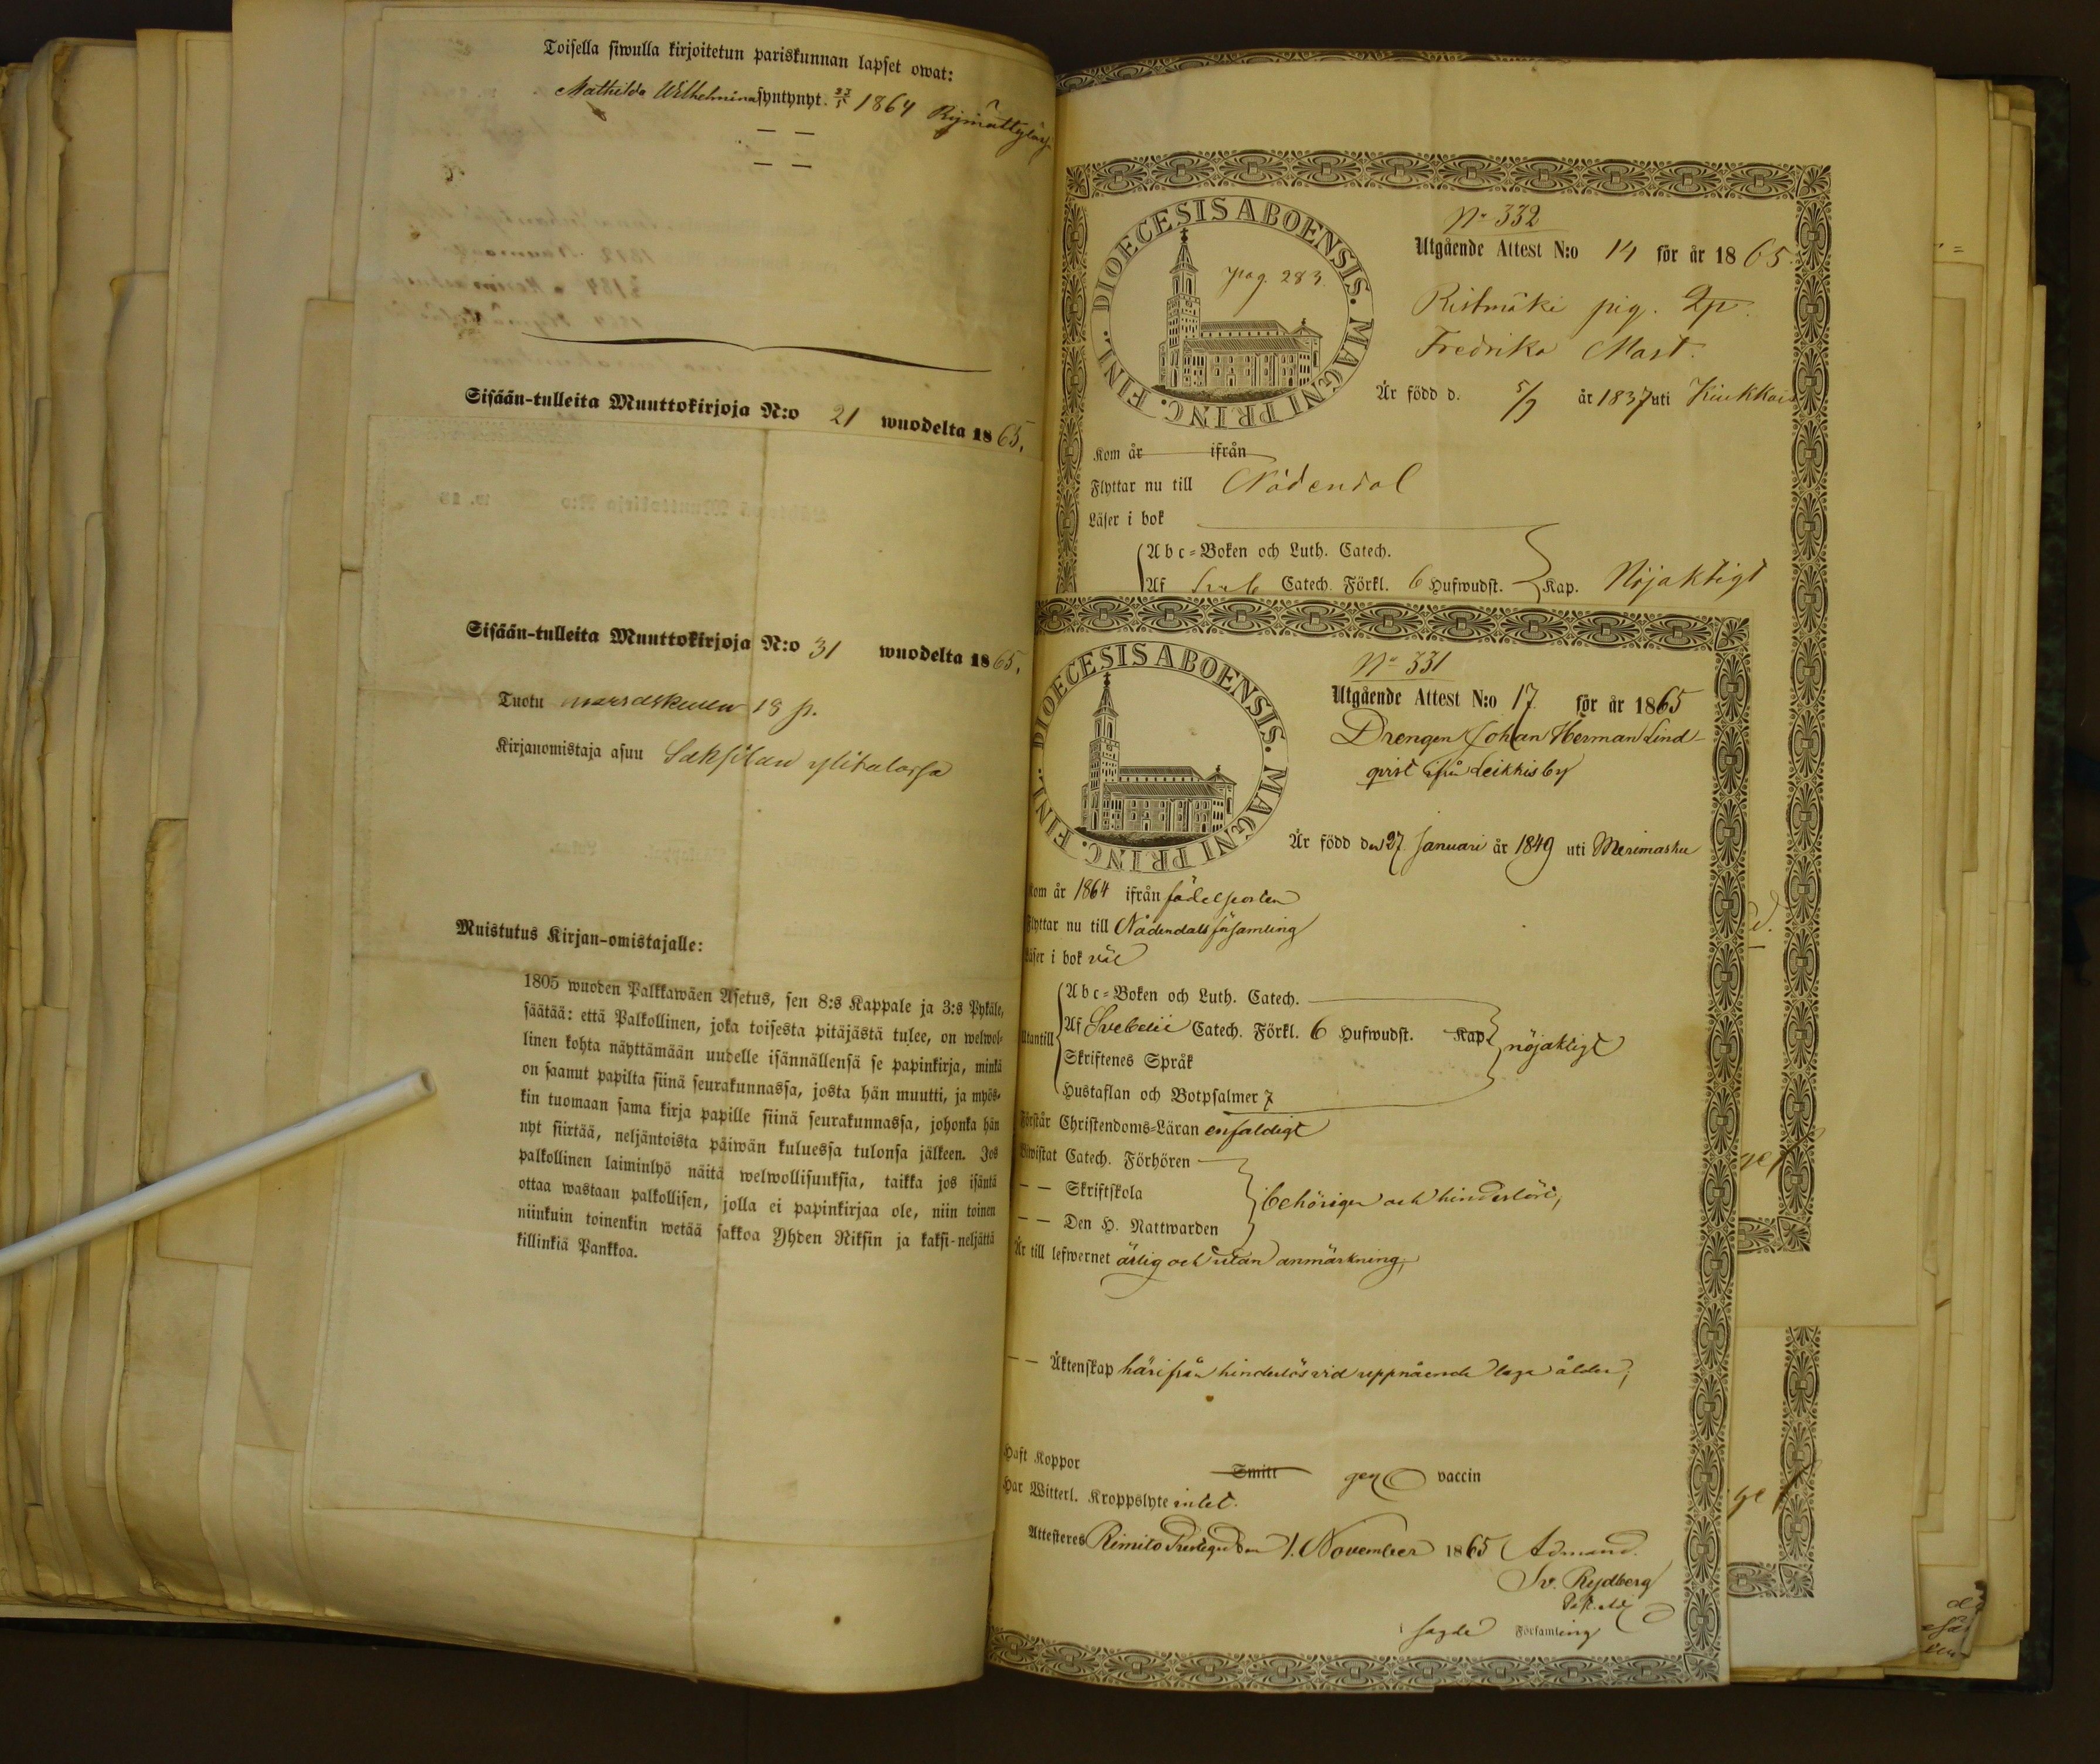 Toisella siwulla kirjoitetun pariskunnan lapset owat:
Mathilda Wilhelmina syntynyt. 27/5 1864 Rymättyläs
— —
— —
Sisään-tulleita Muuttokirjoja N:o 21 wuodelta 1865.
Sisään-tulleita Muuttokirjoja N:o 31 wuodelta 1865.
Tuotu marraskuun 18 p.
Kirjanomistaja asuu ylitalossa
Muistutus Kirjan-omistajalle:
1805 wuoden Palkkawäen Asetus, sen 8:s Kappale ja 3:s Pykäle,
säätää: että Palkollinen, joka toisesta pitäjästä tulee, on welwol-
linen kohta näyttämään uudelle isännällensä se papinkirja, minkä
on saanut papilta siinä seurakunnassa, josta hän muutti, ja myös-
kin tuomaan sama kirja papille siinä seurakunnassa, johonka hän
nyt siirtää, neljäntoista päiwän kuluessa tulonsa jälkeen. Jos
palkollinen laiminlyö näitä welwollisuuksia, taikka jos isäntä
ottaa wastaan palkollisen, jolla ei papinkirjaa ole, niin toinen
niinkuin toinenkin wetää sakkoa Yhden Riksin ja kaksi-neljättä
killinkiä Pankkoa.
DIOECESIS ABOENSIS. MAGNI PRINC. FINL.
pag. 283.
No 332
Utgående Attest N:o 14 för år 1865.
Ristmäki pig. Dr.
Fredrika Mart.
Är född d. 5/9 år 1837 uti
Kom år ifrån
Flyttar nu till Nådendal
Läser i bok
Abc-Boken och Luth. Catech.
Af Sveb Catech. Förkl. 6 Hufwudst. Kap. Nöjaktigt
DIOECESIS ABOENSIS. MAGNI PRINC. FINL.
No 331
Utgående Attest N:o 17 för år 1865
Drengen Johan Herman Lind-
qvist ifrån Leikkisby
Är född den 27 Januari år 1849 uti Merimasku
Kom år 1864 ifrån födelseorten
Flyttar nu till Nådendals församling
Läser i bok väl
Utantill
Abc-Boken och Luth. Catech.
Af Svebelii Catech. Förkl. 6 Hufwudst. Kap. nöjaktigt
Skriftenes Språk
Hustaflan och Botpsalmer 7
Förstår Christendoms-Läran enfaldigt
Biwistat Catech. Förhören
— — Skriftskola behörigen och hinderlös,
— — Den H. Nattwarden
Är till lefwernet ärlig och utan anmärkning,
— — Äktenskap härifrån hinderlös vid uppnående laga ålder;
Haft Koppor Smitt gen vaccin
Har Witterl. Kroppslyte intet.
Attesteres Rimito Prestegård den 1. November 1865
Sv. Rydberg
i sagde Församling